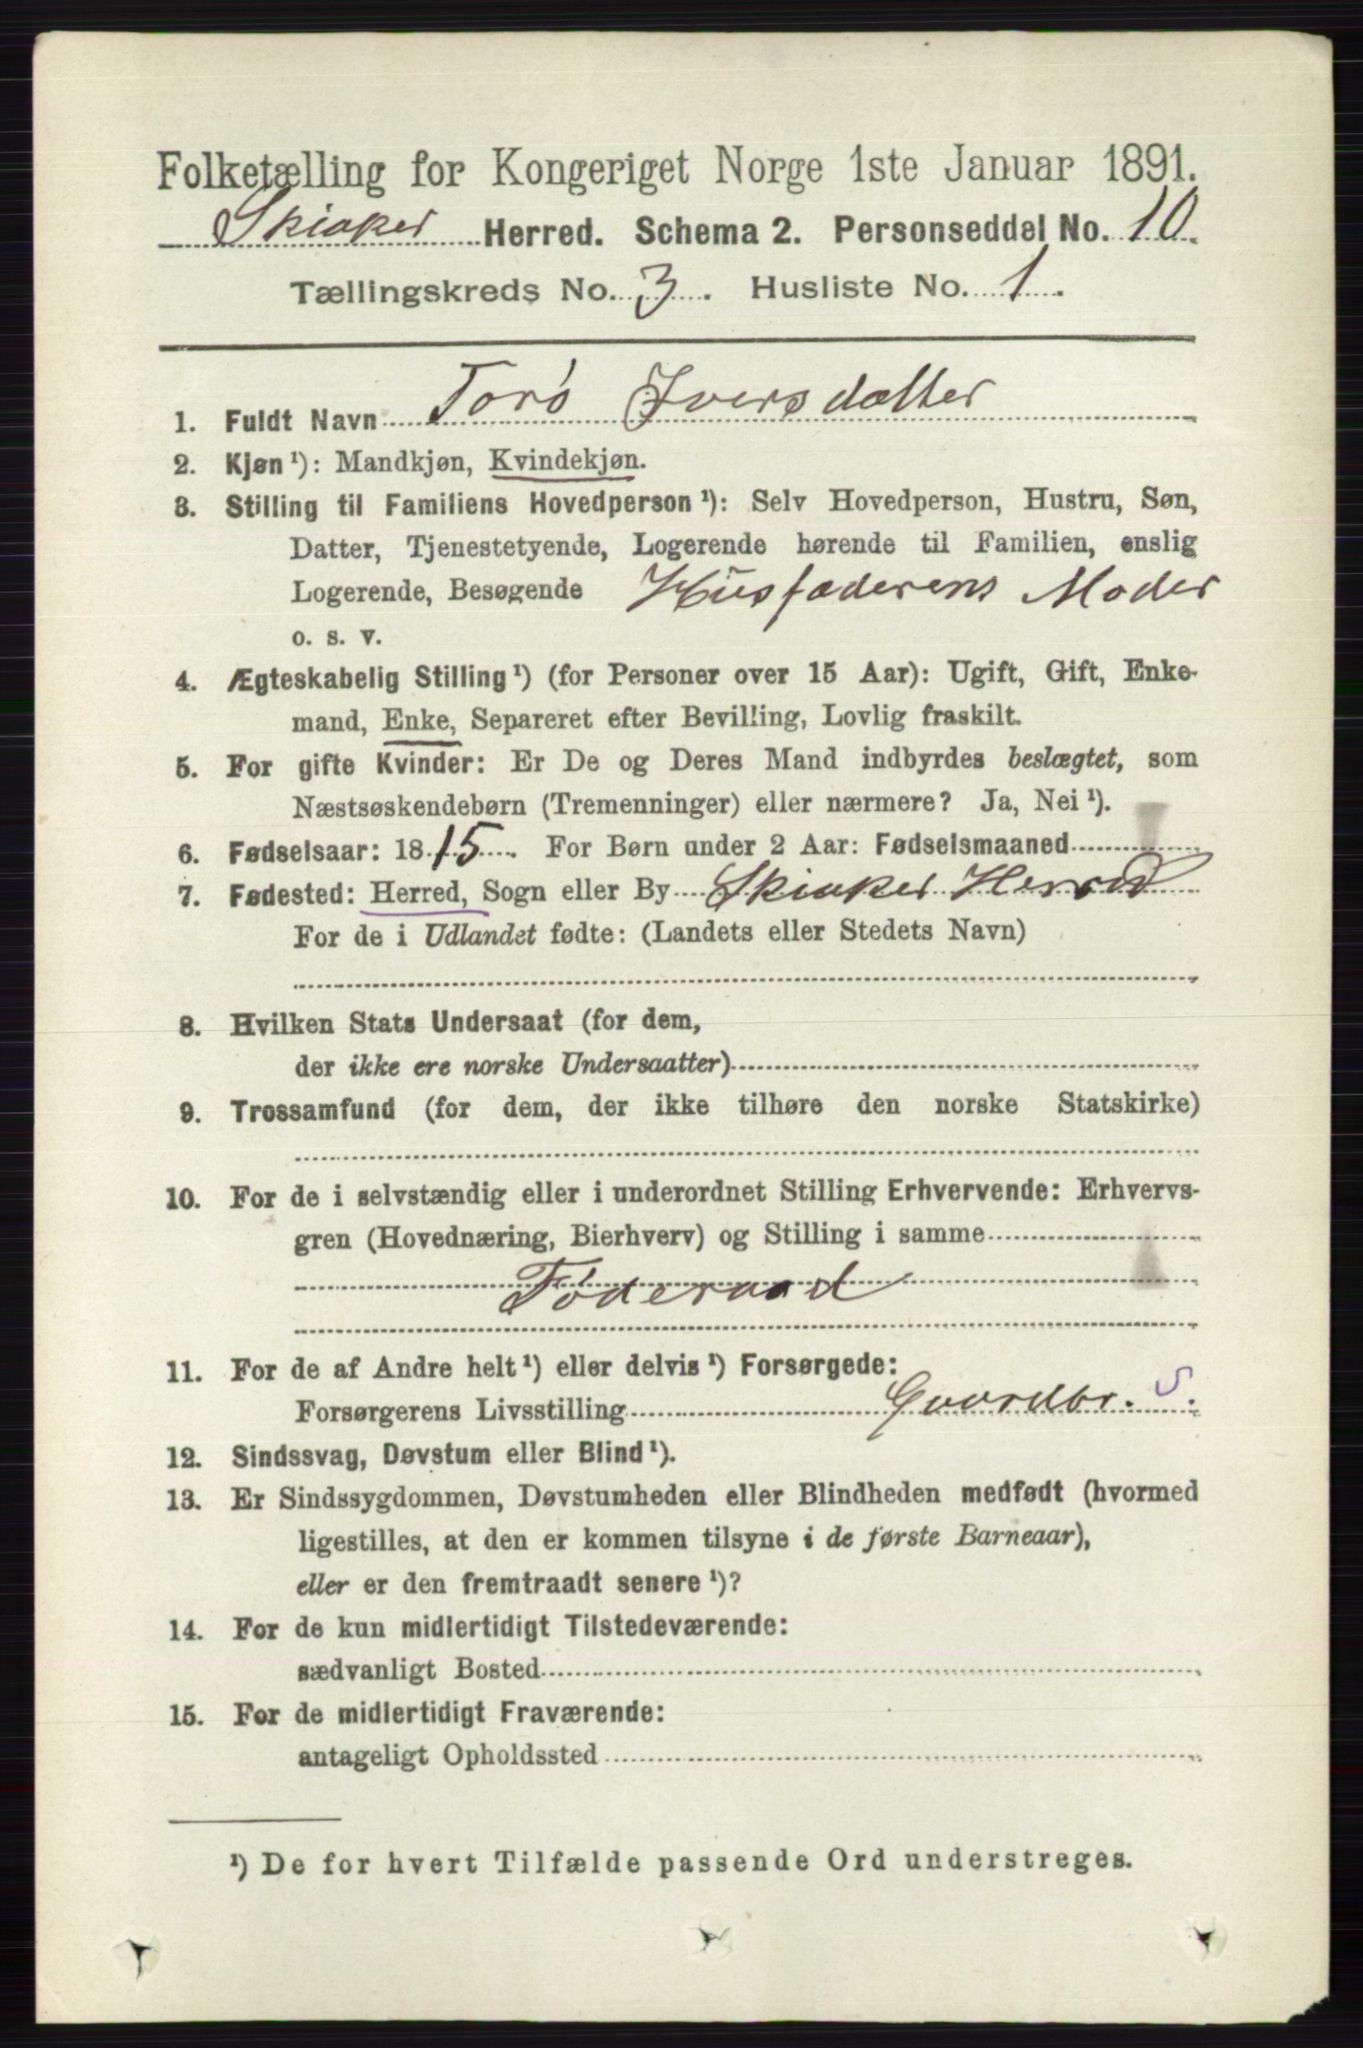 Folketælling for Kongeriget Norge 1ste Januar 1891.
Skiaker Herred. Schema 2. Personseddel No. 10.
Tællingskreds No. 3. Husliste No. 1.
1. Fuldt Navn Torø Iversdatter
2. Kjøn ¹): Mandkjøn, Kvindekjøn.
3. Stilling til Familiens Hovedperson ¹): Selv Hovedperson, Hustru, Søn,
Datter, Tjenestetyende, Logerende hørende til Familien, enslig
Logerende, Besøgende Husfaderens Moder
o. s. v.
4. Ægteskabelig Stilling ¹) (for Personer over 15 Aar): Ugift, Gift, Enke-
mand, Enke, Separeret efter Bevilling, Lovlig fraskilt.
5. For gifte Kvinder: Er De og Deres Mand indbyrdes beslægtet, som
Næstsøskendebørn (Tremenninger) eller nærmere? Ja, Nei ¹).
6. Fødselsaar: 1815. For Børn under 2 Aar: Fødselsmaaned
7. Fødested: Herred, Sogn eller By Skiaker Herred
For de i Udlandet fødte: (Landets eller Stedets Navn)
8. Hvilken Stats Undersaat (for dem,
der ikke ere norske Undersaatter)
9. Trossamfund (for dem, der ikke tilhøre den norske Statskirke)
10. For de i selvstændig eller i underordnet Stilling Erhvervende: Erhvervs-
gren (Hovednæring, Bierhverv) og Stilling i samme
Føderaad
11. For de af Andre helt ¹) eller delvis ¹) Forsørgede:
Forsørgerens Livsstilling Gaardbr. S.
12. Sindssvag, Døvstum eller Blind ¹).
13. Er Sindssygdommen, Døvstumheden eller Blindheden medfødt (hvormed
ligestilles, at den er kommen tilsyne i de første Barneaar),
eller er den fremtraadt senere ¹)?
14. For de kun midlertidigt Tilstedeværende:
sædvanligt Bosted
15. For de midlertidigt Fraværende:
antageligt Opholdssted
¹) De for hvert Tilfælde passende Ord understreges.